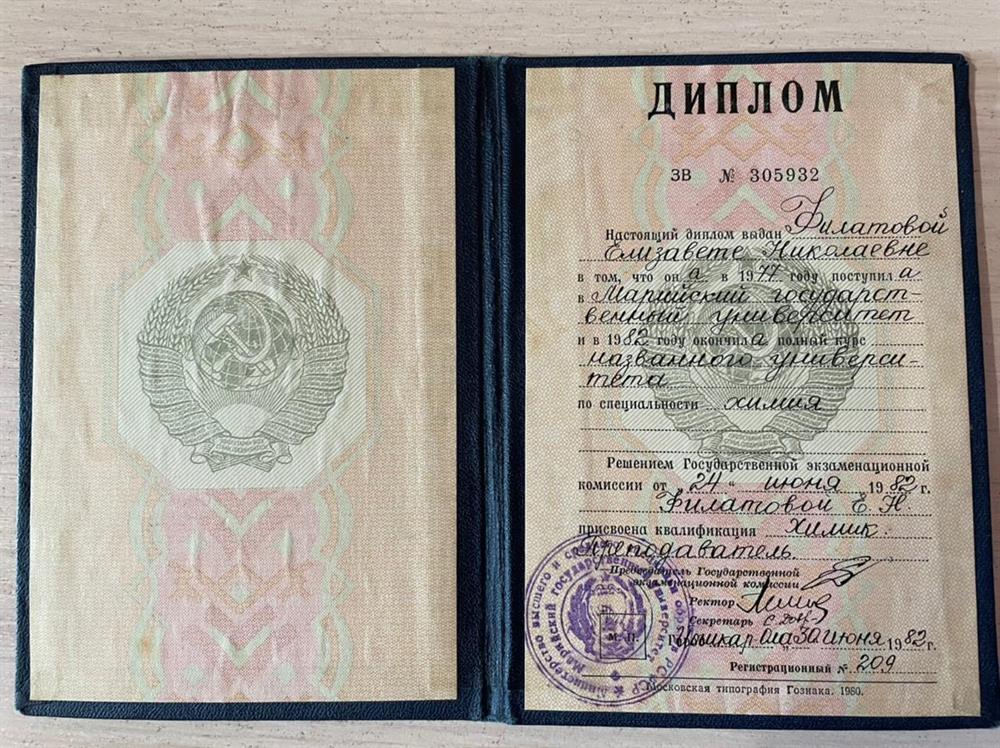 ДИПЛОМ
ЗВ № 305932
Настоящий диплом выдан Филатовой
Елизавете Николаевне
в том, что он а в 1977 году поступил а
в Марийский государст-
венный университет
и в 1982 году окончил а полный курс
названного универси-
тета
по специальности химия
Решением Государственной экзаменационной
комиссии от „24“ июня 1982 г.
Филатовой Е. Н.
присвоена квалификация Химик.
Преподаватель
Председатель Государственной
экзаменационной комиссии
Ректор
Секретарь
М. П.
Город Йошкар-Ола 30 июня 1982 г.
Регистрационный № 209
Московская типография Гознака. 1980.
Министерство высшего и среднего РСФСР
Марийский государственный университет